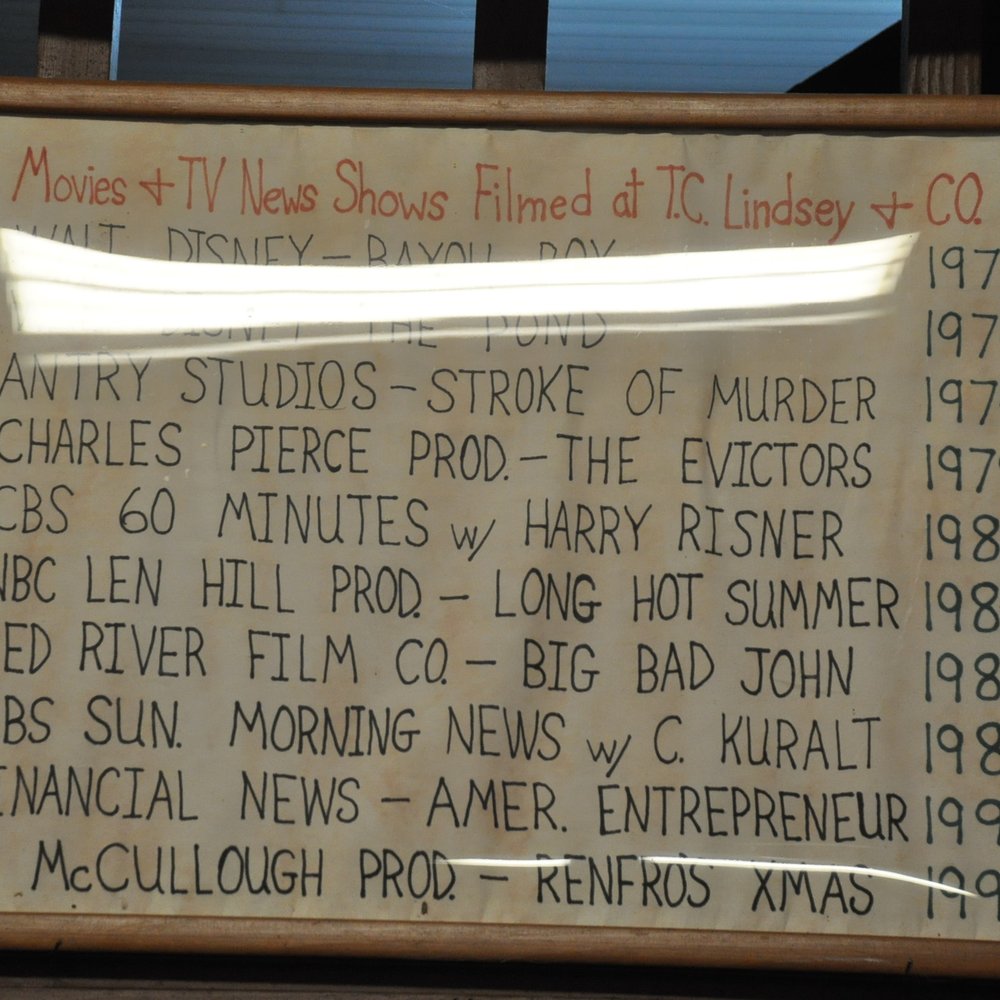 Movies & TV News Shows Filmed at T.C. Lindsey & CO.
WALT DISNEY - BAYOU BOY 197
DISNEY - THE POND 197
ANTRY STUDIOS - STROKE OF MURDER 197
CHARLES PIERCE PROD. - THE EVICTORS 197
CBS 60 MINUTES w/ HARRY RISNER 198
NBC LEN HILL PROD. - LONG HOT SUMMER 198
ED RIVER FILM CO. - BIG BAD JOHN 198
BS SUN. MORNING NEWS w/ C. KURALT 198
INANCIAL NEWS - AMER. ENTREPRENEUR 199
McCULLOUGH PROD. - RENFRO'S XMAS 199